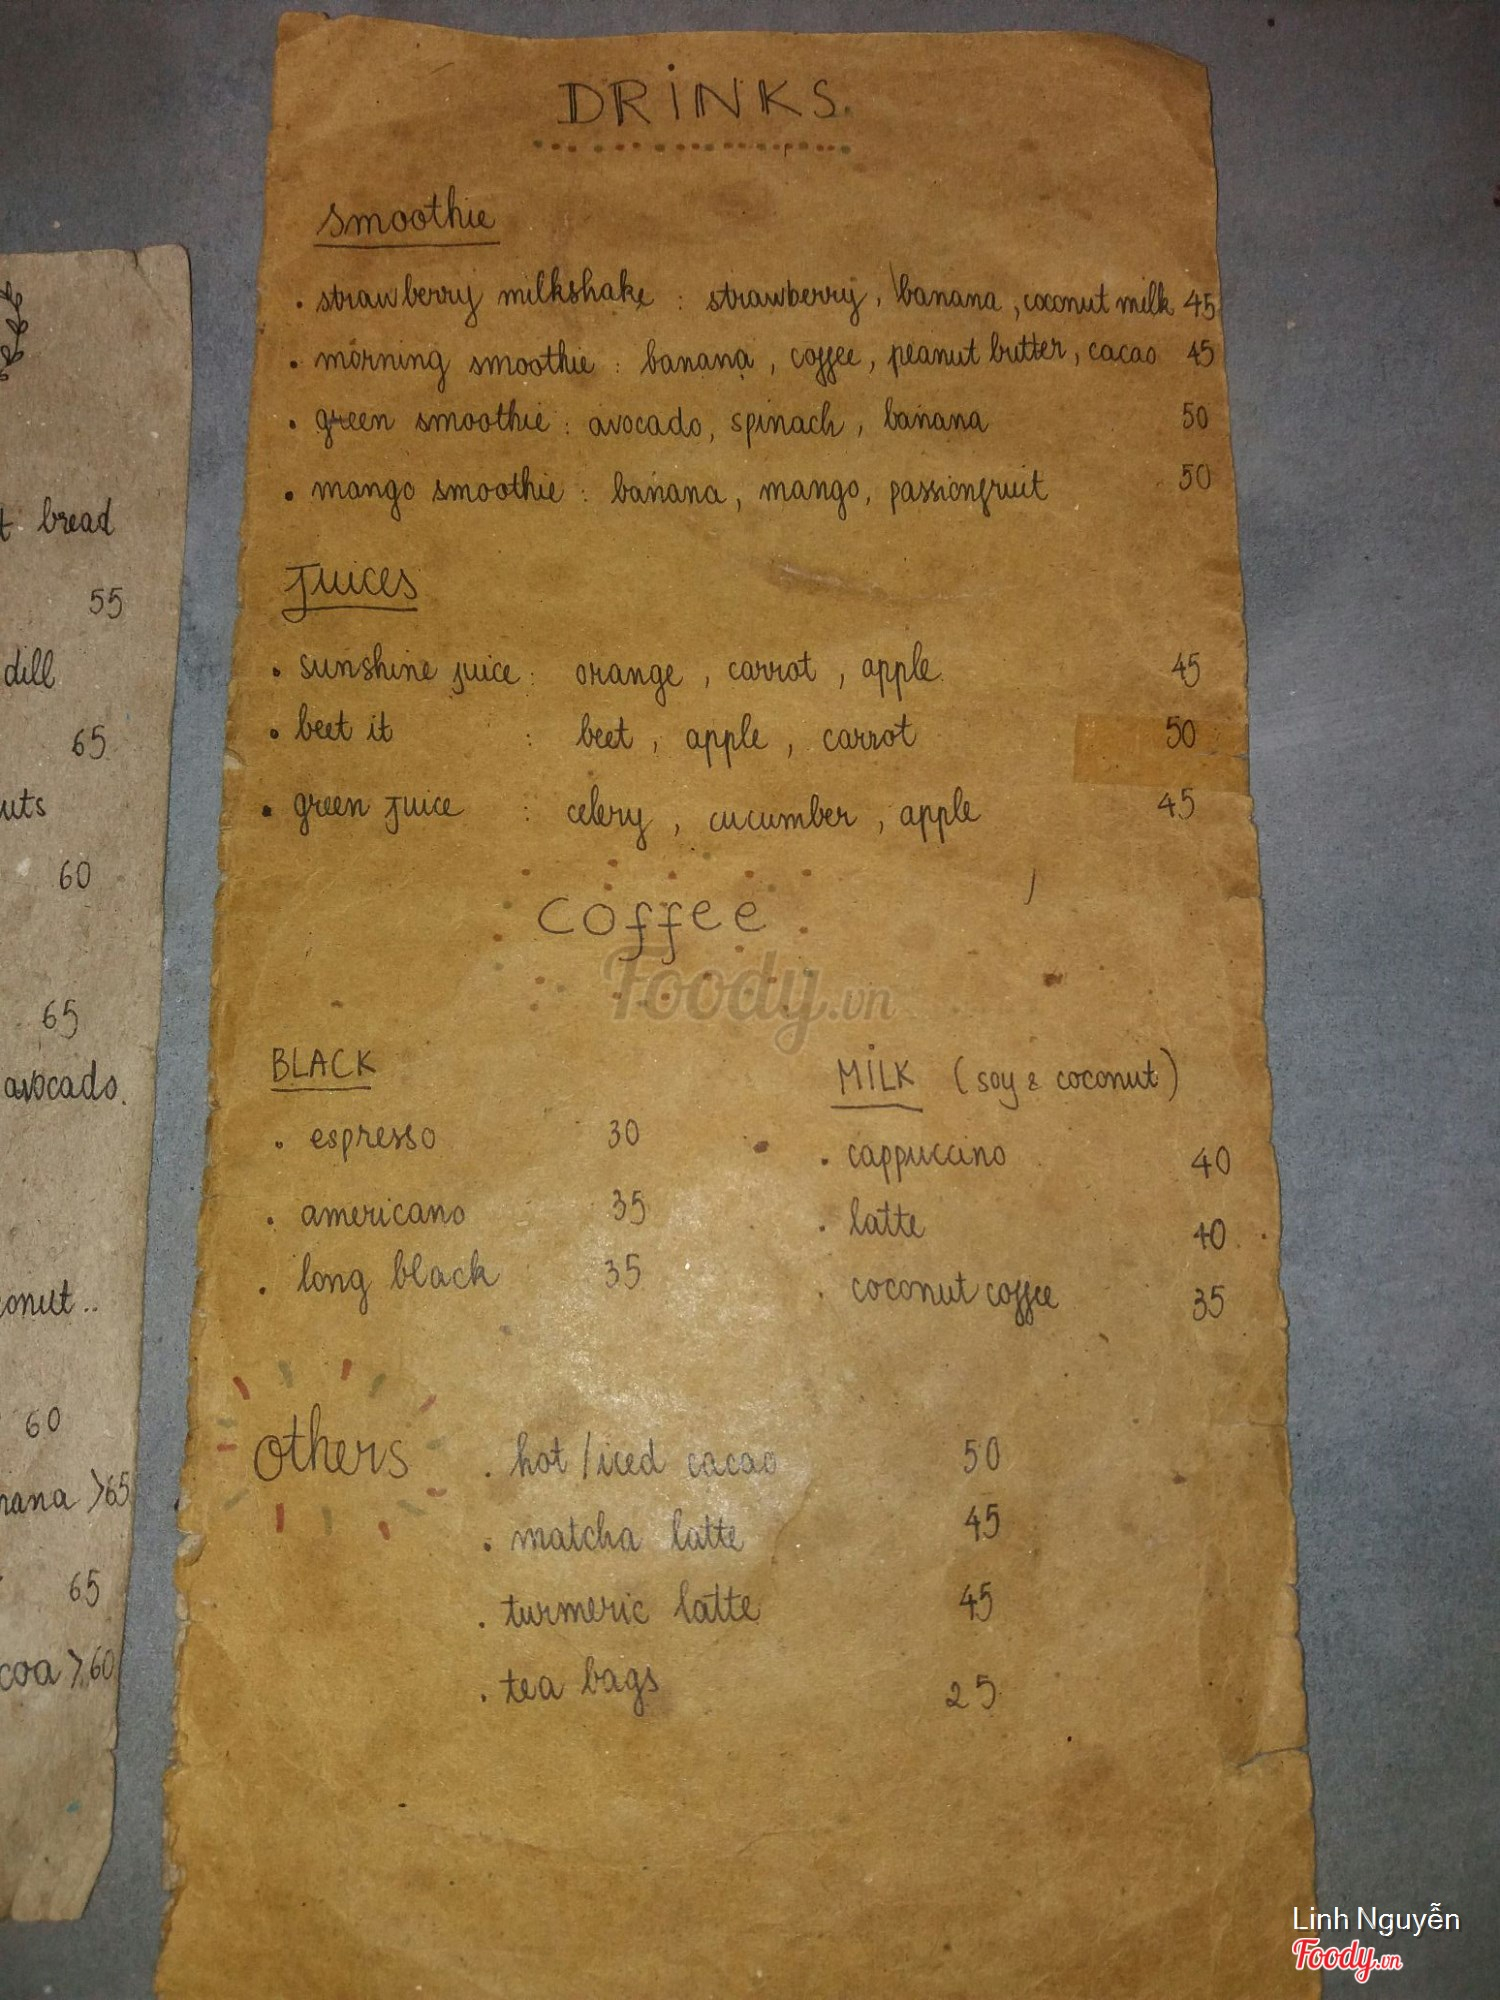 DRINKS.
smoothie
. strawberry milkshake : strawberry, banana, coconut milk 45
. morning smoothie : banana, coffee, peanut butter, cacao 45
. green smoothie : avocado, spinach, banana 50
. mango smoothie : banana, mango, passionfruit 50
Juices
. sunshine juice : orange, carrot, apple 45
. beet it : beet, apple, carrot 50
. green juice : celery, cucumber, apple 45
Coffee
Foody.vn
BLACK
. espresso 30
. americano 35
. long black 35
MILK (soy & coconut)
. cappuccino 40
. latte 40
. coconut coffee 35
Others
. hot/iced cacao 50
. matcha latte 45
. turmeric latte 45
. tea bags 25
bread
55
dill
65
60
65
avocado.
60
>65
65
>60
Linh Nguyễn
Foody.vn